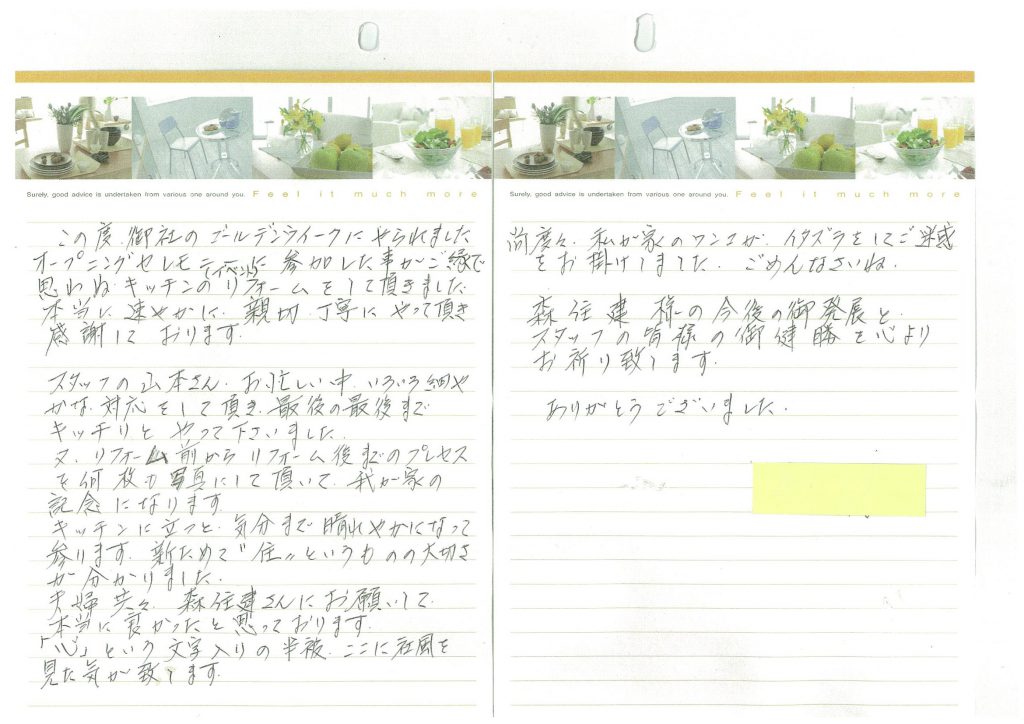 Surely, good advice is undertaken from various one around you. Feel it much more
この度、御社のゴールデンウイークにやられました
オープニングセレモニーに参加した事がご縁で
(イベント)
思わぬキッチンのリフォームをして頂きました。
本当に速やかに、親切、丁寧にやって頂き
感謝して おります。
スタッフの山本さん、お忙しい中、いろいろ細や
かな対応をして頂き、最後の最後まで
キッチリと やって下さいました。
又、リフォーム前からリフォーム後までのプレセス
を何枚も写真にして頂いて、我が家の
記念になります。
キッチンに立つと、気分まで晴れやかになって
参ります。新ためて〝住〟というものの大切さ
が分かりました。
夫婦共々、森住建さんにお願いして
本当に良かったと思っております。
「心」という文字入りの半被、ここに社風を
見た気が致します。
Surely, good advice is undertaken from various one around you. Feel it much more
尚度々、私が家のワンコが、イタズラをしてご迷惑
をお掛けしました。ごめんなさいね。
森住建様の今後の御発展と、
スタッフの皆様の御健勝を心より
お祈り致します。
ありがとうございました。